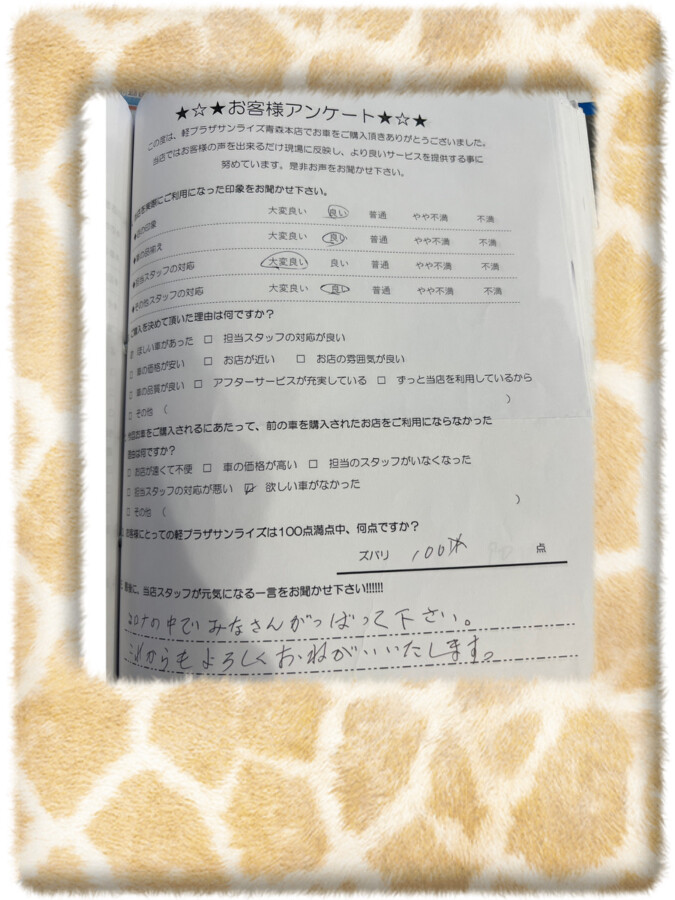 ★☆★お客様アンケート★☆★
この度は、軽プラザサンライズ青森本店でお車をご購入頂きありがとうございました。
当店ではお客様の声を出来るだけ現場に反映し、より良いサービスを提供する事に
努めています。是非お声をお聞かせ下さい。
を実際にご利用になった印象をお聞かせ下さい。
●店の印象 大変良い 良い 普通 やや不満 不満
●車の品揃え 大変良い 良い 普通 やや不満 不満
●担当スタッフの対応 大変良い 良い 普通 やや不満 不満
●その他スタッフの対応 大変良い 良い 普通 やや不満 不満
ご購入を決めて頂いた理由は何ですか？
ほしい車があった □ 担当スタッフの対応が良い
□ 車の価格が安い □ お店が近い □ お店の雰囲気が良い
□ 車の品質が良い □ アフターサービスが充実している □ ずっと当店を利用しているから
□ その他 （ ）
今回お車をご購入されるにあたって、前の車を購入されたお店をご利用にならなかった
理由は何ですか？
□ お店が遠くて不便 □ 車の価格が高い □ 担当のスタッフがいなくなった
□ 担当スタッフの対応が悪い ☑ 欲しい車がなかった
□ その他 （ ）
お客様にとっての軽プラザサンライズは100点満点中、何点ですか？
ズバリ 100点 点
最後に、当店スタッフが元気になる一言をお聞かせ下さい!!!!!!
コロナの中でみなさんがんばって下さい。
これからもよろしくおねがいいたします。